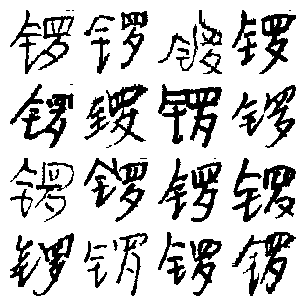 锣锣锣锣
锣锣锣锣
锣锣锣锣
锣锣锣锣